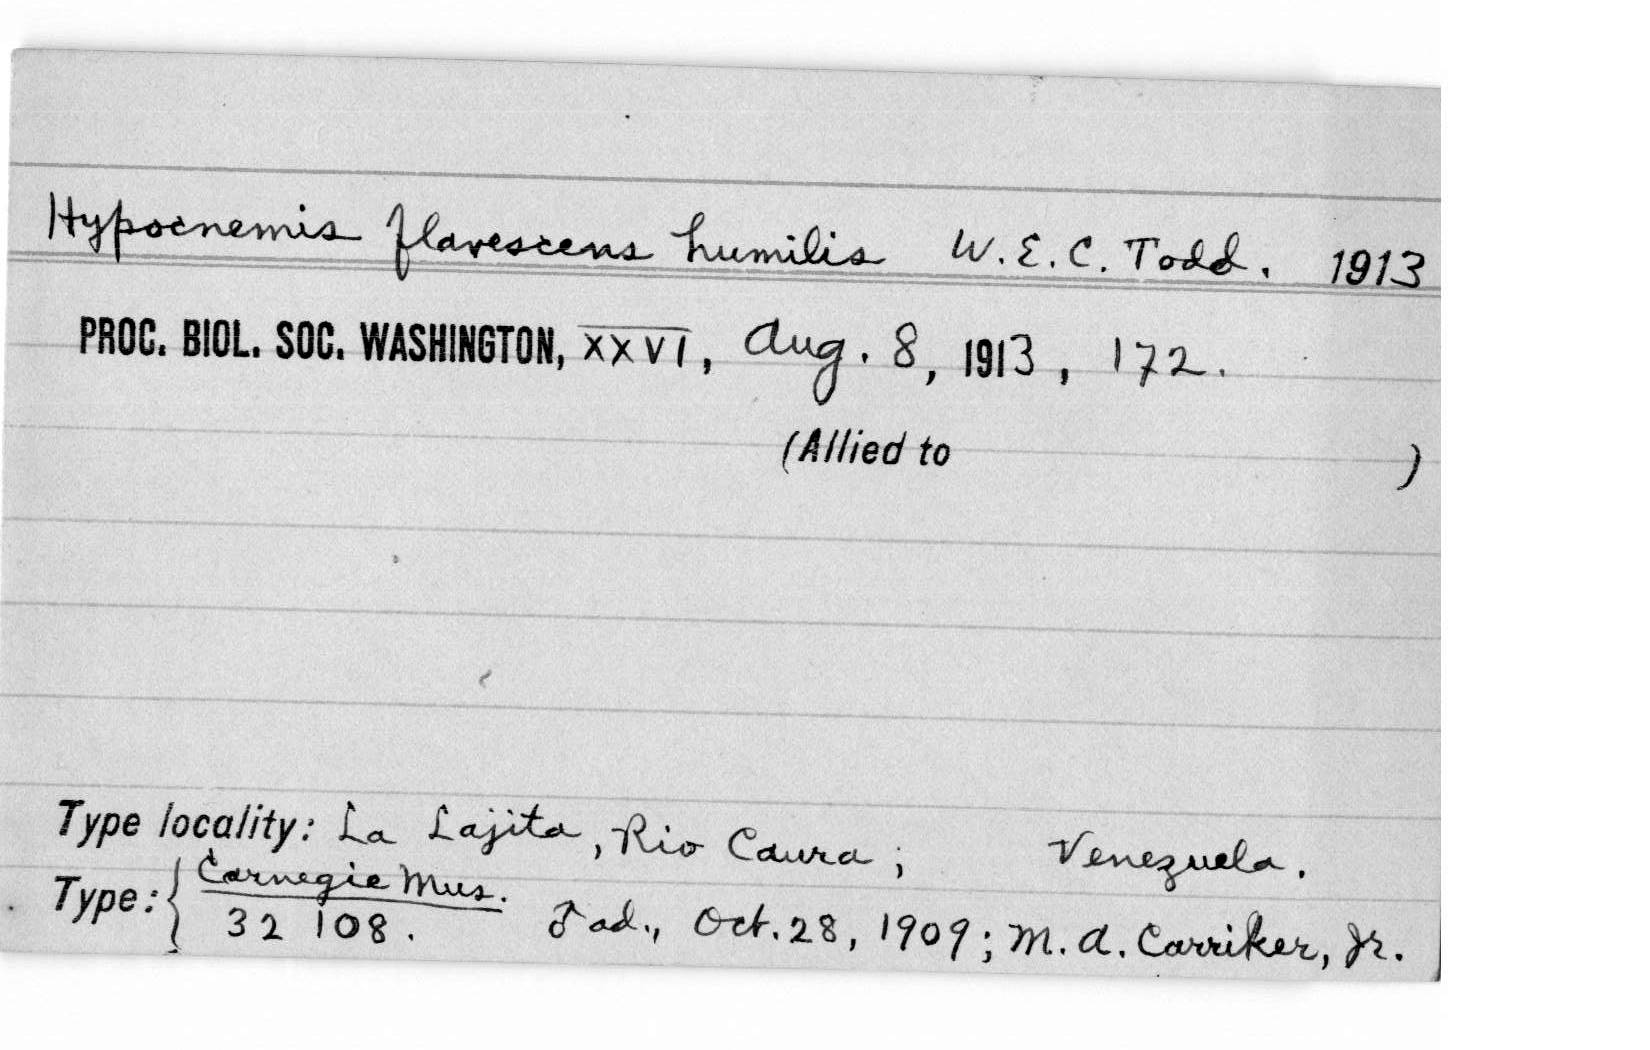 Hypocnemis flavescens humilis W. E. C. Todd. 1913
PROC. BIOL. SOC. WASHINGTON, XXVI, Aug. 8, 1913, 172.
(Allied to )
Type locality: La Lajita, Rio Caura; Venezuela.
Type: { Carnegie Mus.
32 108. ♂ ad., Oct. 28, 1909; M. A. Carriker, Jr.